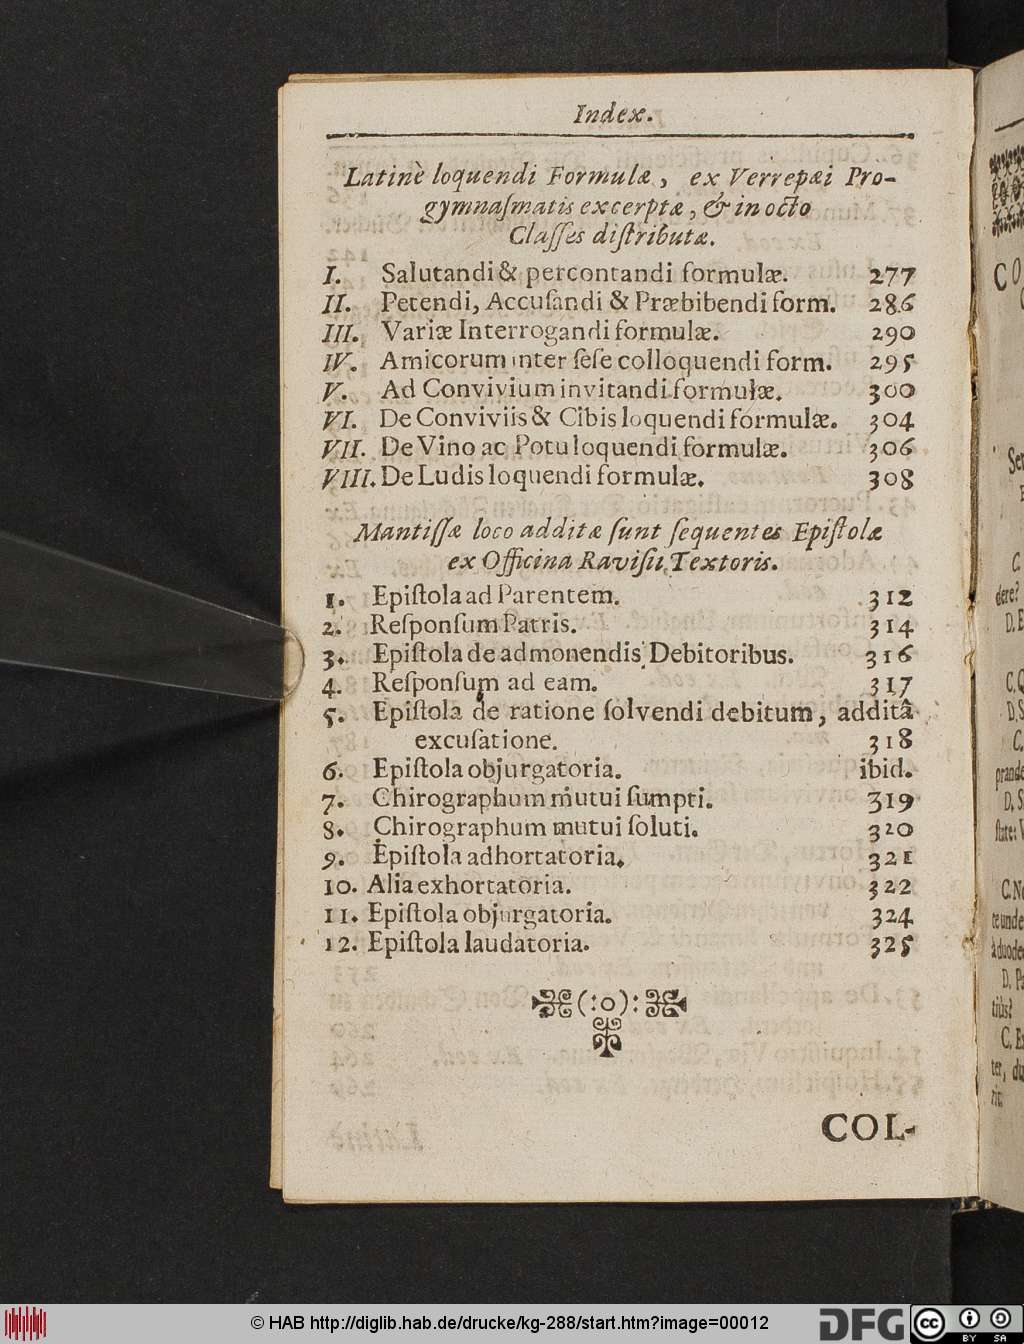 Index.
Latinè loquendi Formulæ, ex Verrepæi Pro-
gymnaſmatis excerptæ, & in octo
Claſſes diſtributæ.
I. Salutandi & percontandi formulæ. 277
II. Petendi, Accuſandi & Præbibendi form. 286
III. Variæ Interrogandi formulæ. 290
IV. Amicorum inter ſeſe colloquendi form. 295
V. Ad Convivium invitandi formulæ. 300
VI. De Conviviis & Cibis loquendi formulæ. 304
VII. De Vino ac Potu loquendi formulæ. 306
VIII. De Ludis loquendi formulæ. 308
Mantiſſæ loco additæ ſunt ſequentes Epiſtolæ
ex Officina Raviſii Textoris.
1. Epiſtola ad Parentem. 312
2. Reſponſum Patris. 314
3. Epiſtola de admonendis Debitoribus. 316
4. Reſponſum ad eam. 317
5. Epiſtola de ratione ſolvendi debitum, additâ
excuſatione. 318
6. Epiſtola objurgatoria. ibid.
7. Chirographum mutui ſumpti. 319
8. Chirographum mutui ſoluti. 320
9. Epiſtola adhortatoria. 321
10. Alia exhortatoria. 322
11. Epiſtola objurgatoria. 324
12. Epiſtola laudatoria. 325
(:o):
COL-
© HAB http://diglib.hab.de/drucke/kg-288/start.htm?image=00012
DFG
cc BY SA